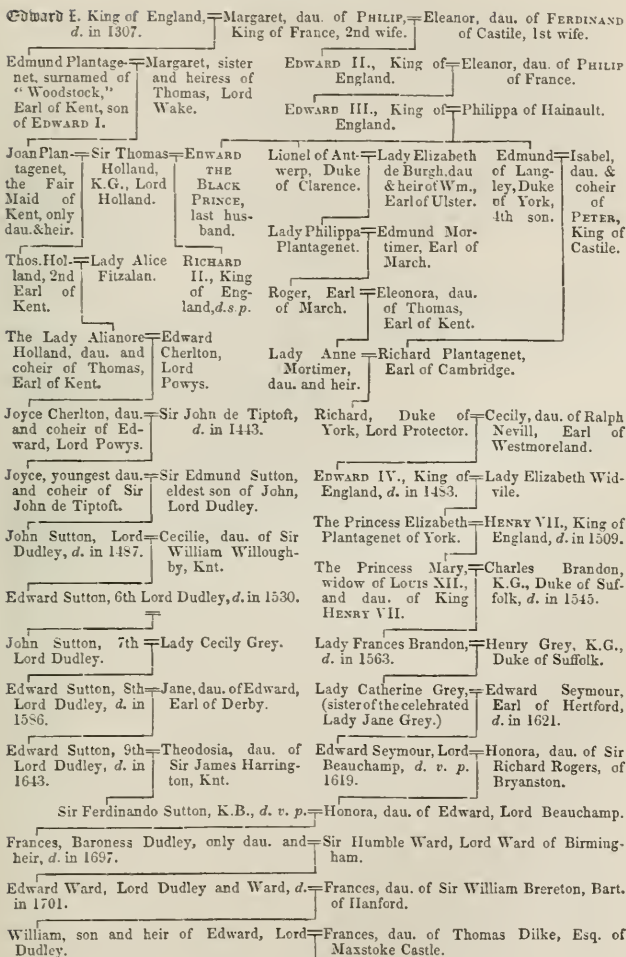 Edward I. King of England,
d. in 1307.
Margaret, dau. of PHILIP,
King of France, 2nd wife.
Eleanor, dau. of FERDINAND
of Castile, 1st wife.
Edmund Plantage-
net, surnamed of
"Woodstock,"
Earl of Kent, son
of EDWARD I.
Margaret, sister
and heiress of
Thomas, Lord
Wake.
EDWARD II., King of
England.
Eleanor, dau. of PHILIP
of France.
EDWARD III., King of
England.
Philippa of Hainault.
Joan Plan-
tagenet,
the Fair
Maid of
Kent, only
dau. & heir.
Sir Thomas
Holland,
K.G., Lord
Holland.
EDWARD
THE
BLACK
PRINCE,
last hus-
band.
Lionel of Ant-
werp, Duke
of Clarence.
Lady Elizabeth
de Burgh, dau
& heir of Wm.,
Earl of Ulster.
Edmund
of Lang-
ley, Duke
of York,
4th son.
Isabel,
dau. &
coheir
of
PETER,
King of
Castile.
Lady Philippa
Plantagenet.
Edmund Mor-
timer, Earl of
March.
Thos. Hol-
land, 2nd
Earl of
Kent.
Lady Alice
Fitzalan.
RICHARD
II., King
of Eng-
land, d.s.p.
Roger, Earl
of March.
Eleonora, dau.
of Thomas,
Earl of Kent.
The Lady Alianore
Holland, dau. and
coheir of Thomas,
Earl of Kent.
Edward
Cherlton,
Lord
Powys.
Lady Anne
Mortimer,
dau. and heir.
Richard Plantagenet,
Earl of Cambridge.
Joyce Cherlton, dau.
and coheir of Ed-
ward, Lord Powys.
Sir John de Tiptoft,
d. in 1443.
Richard, Duke of
York, Lord Protector.
Cecily, dau. of Ralph
Nevill, Earl of
Westmoreland.
Joyce, youngest dau.
and coheir of Sir
John de Tiptoft.
Sir Edmund Sutton,
eldest son of John,
Lord Dudley.
EDWARD IV., King of
England, d. in 1483.
Lady Elizabeth Wid-
vile.
John Sutton, Lord
Dudley, d. in 1487.
Cecilie, dau. of Sir
William Willough-
by, Knt.
The Princess Elizabeth
Plantagenet of York.
HENRY VII., King of
England, d. in 1509.
Edward Sutton, 6th Lord Dudley, d. in 1530.
The Princess Mary,
widow of LOUIS XII.,
and dau. of King
HENRY VII.
Charles Brandon,
K.G., Duke of Suf-
folk, d. in 1545.
John Sutton, 7th
Lord Dudley.
Lady Cecily Grey.
Lady Frances Brandon,
d. in 1563.
Henry Grey, K.G.,
Duke of Suffolk.
Edward Sutton, 8th
Lord Dudley, d. in
1586.
Jane, dau. of Edward,
Earl of Derby.
Lady Catherine Grey,
(sister of the celebrated
Lady Jane Grey.)
Edward Seymour,
Earl of Hertford,
d. in 1621.
Edward Sutton, 9th
Lord Dudley, d. in
1643.
Theodosia, dau. of
Sir James Harring-
ton, Knt.
Edward Seymour, Lord
Beauchamp, d. v. p.
1619.
Honora, dau. of Sir
Richard Rogers, of
Bryanston.
Sir Ferdinando Sutton, K.B., d. v. p.
Honora, dau. of Edward, Lord Beauchamp.
Frances, Baroness Dudley, only dau. and
heir, d. in 1697.
Sir Humble Ward, Lord Ward of Birming-
ham.
Edward Ward, Lord Dudley and Ward, d.
in 1701.
Frances, dau. of Sir William Brereton, Bart.
of Hanford.
William, son and heir of Edward, Lord
Dudley.
Frances, dau. of Thomas Dilke, Esq. of
Maxstoke Castle.